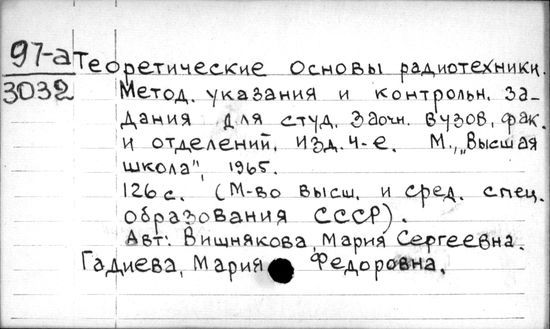 97-а Теоретические основы радиотехники.
3032 Метод. указания и контрольн. за-
дания для студ. заочн. вузов, фак.
и отделений. Изд. 4-е. М., „Высшая
школа", 1965.
126 с. (М-во высш. и сред. спец.
образования СССР).
Авт.: Вишнякова, Мария Сергеевна.
Гадиева, Мария Федоровна.